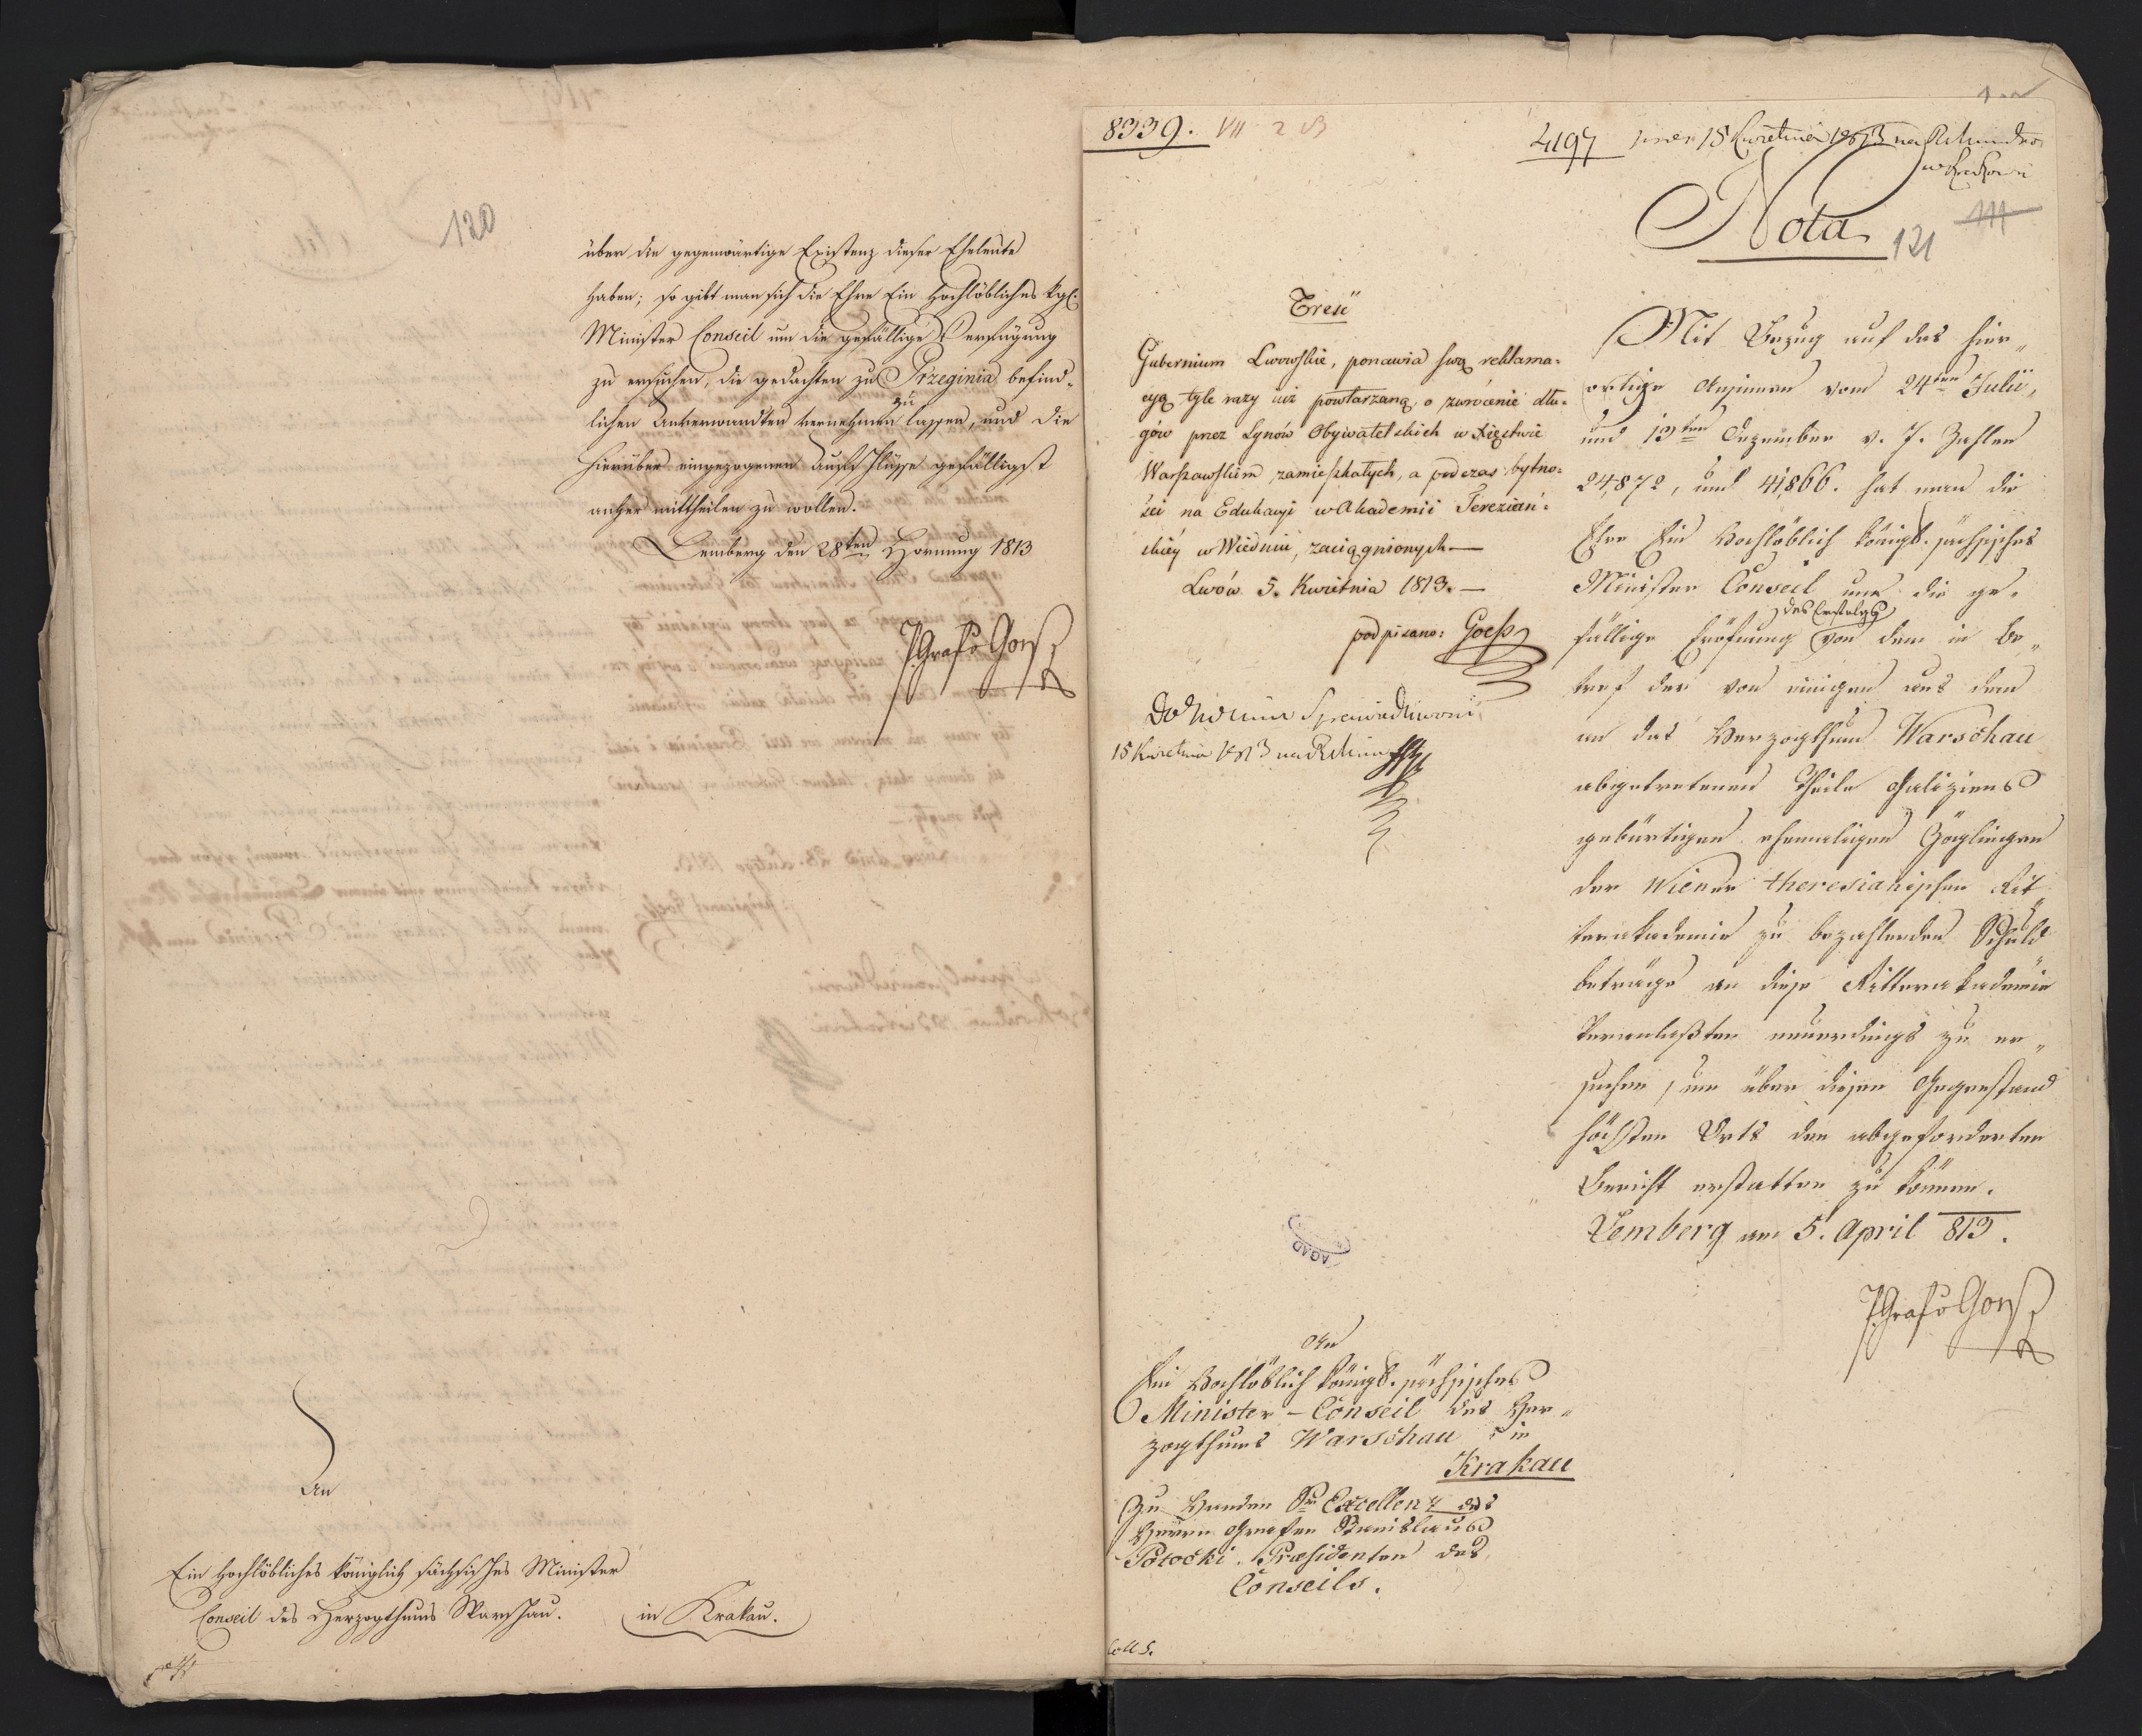 120
über die gegenwärtige Existenz dieser Eheleute
haben; so gibt man sich die Ehre Ein Hochlöbliches kgl.
Minister Conseil um die gefällige Verfügung
zu ersuchen, die gedachten zu Przeginia befind-
lichen Anverwandten vernehmen zu lassen, und die
hierüber eingezogenen Aufschlüsse gefälligst
anher mittheilen zu wollen.
Lemberg den 28ten Hornung 1813
PGraf v Goëß
An
Ein Hochlöbliches königlich sächsisches Minister
Conseil des Herzogthums Warschau. in Krakau.
8339. VII 2
4197 15 Kwietnia 1813 na Ratuszu
w Krakowie
Nota
111
121
Treść
Gubernium Lwowskie, ponawia swą reklama-
cyą tyle razy już powtarzaną, o zwrócenie dłu-
gów przez Synów Obywatelskich w Xięstwie
Warszawskim zamieszkałych, a podczas bytno-
ści na Edukacyi w Akademii Terezian-
skiéy w Wiedniu, zaciągnionych —
Lwów 5. Kwietnia 1813. —
podpisano: Goeß
Do Ministra Sprawiedliwości
15 Kwietnia 1813 na Ratuszu
Mit Bezug auf das hier-
ortige Ansinnen vom 24ten Julii,
und 13ten Dezember v. J. Zahlen
24,872, und 41,866. hat man die
Ehre Ein Hochlöblich königl. sächsisches
Minister Conseil um die ge-
fällige Eröfnung des Erfolgs von dem in Be-
tref der von einigen aus dem
an das Herzogthum Warschau
abgetretenen Theile Galiziens
gebürtigen ehemaligen Zöglingen
der Wiener theresianischen Rit-
terakademie zu bezahlenden Schuld-
beträge an diese Ritterakademie
Veranlaßten neuerdings zu er-
suchen, um über diesen Gegenstand
höchsten Orts den abgeforderten
Bericht erstatten zu können.
Lemberg am 5. April 813.
PGraf v Goëß
AGAD
An
Ein Hochlöblich königl. sächsisches
Minister-Conseil des Her-
zogthums Warschau in
Krakau
Zu Handen Sr Excellenz des
Herrn Grafen Stanislaus
Potocki. Præsidenten des
Conseils.
Coll S.